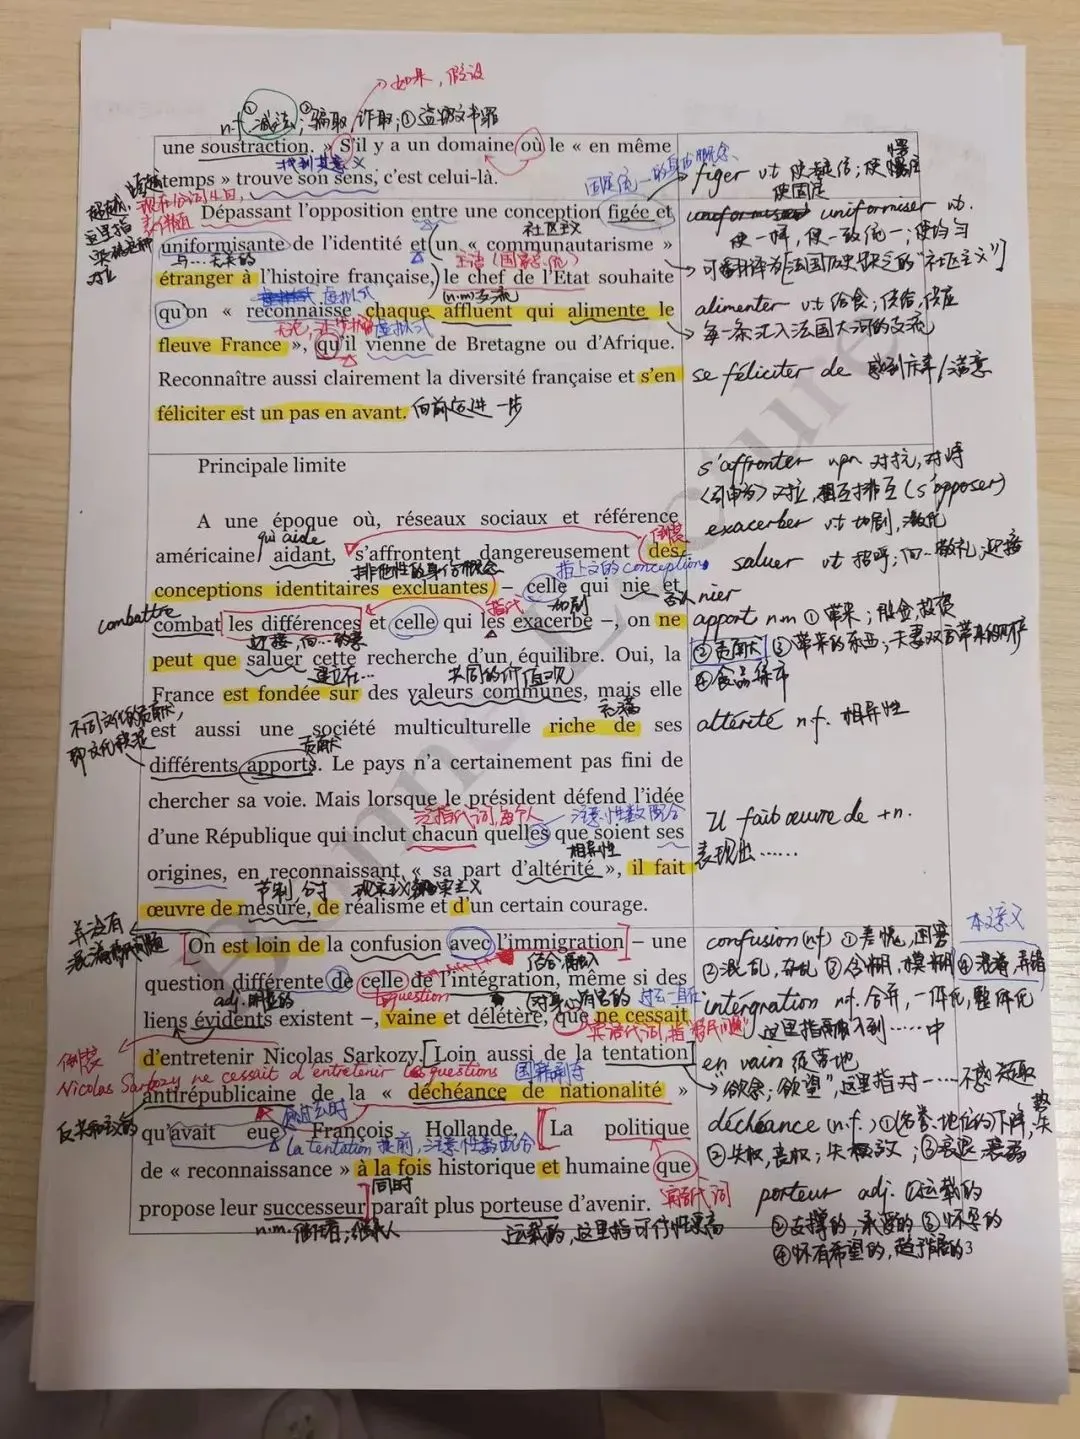 如果，假设
n.f ①减法；②骗取，诈取；③盗窃文书罪
une soustraction. » S'il y a un domaine où le « en même
找到其意义
temps » trouve son sens, c'est celui-là.
固定统一的身份概念
figer vt 使凝结；使
使固定
现在分词
Dépassant l'opposition entre une conception figée et
uniformiser vt.
社区主义
使一样，使一致，统一；使均匀
uniformisante de l'identité et un « communautarisme »
与…无关的
主语(国家总统)
可翻译为[法国历史缺乏的"社区主义"]
étranger à l'histoire française, le chef de l'Etat souhaite
虚拟式
(n.m)支流
alimenter vt 给食；供给，供应
qu'on « reconnaisse chaque affluent qui alimente le
虚拟式
每一条汇入法国大河的支流
fleuve France », qu'il vienne de Bretagne ou d'Afrique.
Reconnaître aussi clairement la diversité française et s'en
se féliciter de 感到庆幸/满意
féliciter est un pas en avant. 向前迈进一步
Principale limite
s'affronter vpr 对抗，对峙
(引申为)对立，相互排斥(s'opposer)
A une époque où, réseaux sociaux et référence
exacerber vt 加剧，激化
qui aide
倒装
américaine aidant, s'affrontent dangereusement des
saluer vt 招呼；向…敬礼；迎接
排他性的身份概念
指上文的conception
conceptions identitaires excluantes – celle qui nie et
否认 nier
combattre
指代
加剧
combat les différences et celle qui les exacerbe –, on ne
apport n.m ①带来；股金，投资
②贡献 ③带来的东西；夫妻双方带来的财产
peut que saluer cette recherche d'un équilibre. Oui, la
④食品
建立在…
共同的价值观
France est fondée sur des valeurs communes, mais elle
est aussi une société multiculturelle riche de ses
altérité n.f. 相异性
不同文化的贡献，
贡献
différents apports. Le pays n'a certainement pas fini de
chercher sa voie. Mais lorsque le président défend l'idée
泛指代词，每个人
注意性数配合
d'une République qui inclut chacun quelles que soient ses
il fait œuvre de + n.
表现出……
相异性
origines, en reconnaissant « sa part d'altérité », il fait
œuvre de mesure, de réalisme et d'un certain courage.
本意义
并没有
On est loin de la confusion avec l'immigration – une
confusion (nf) ①羞愧，困窘
②混乱，杂乱 ③含糊，模糊 ④混淆，弄错
question différente de celle de l'intégration, même si des
adj. 明显的
question
intégration n.f. 合并，一体化，整体化
liens évidents existent –, vaine et délétère, que ne cessait
这里指融入到……中
倒装
d'entretenir Nicolas Sarkozy. Loin aussi de la tentation
en vain 徒劳地
Nicolas Sarkozy ne cessait d'entretenir les questions
国籍剥夺
欲念；欲望"，这里指对……
antirépublicaine de la « déchéance de nationalité »
反共和主义的
愈过去时
déchéance (n.f.) ①(名誉、地位的)下降，
qu'avait eue François Hollande. La politique
la tentation 提前，注意性数配合
de « reconnaissance » à la fois historique et humaine que
同时
宾语代词
porteur adj. ①运载的
propose leur successeur paraît plus porteuse d'avenir.
n.m. 继任者；继承人
运载的，这里指可行性更高
②支撑的，承受的 ③怀孕的
④怀有希望的，